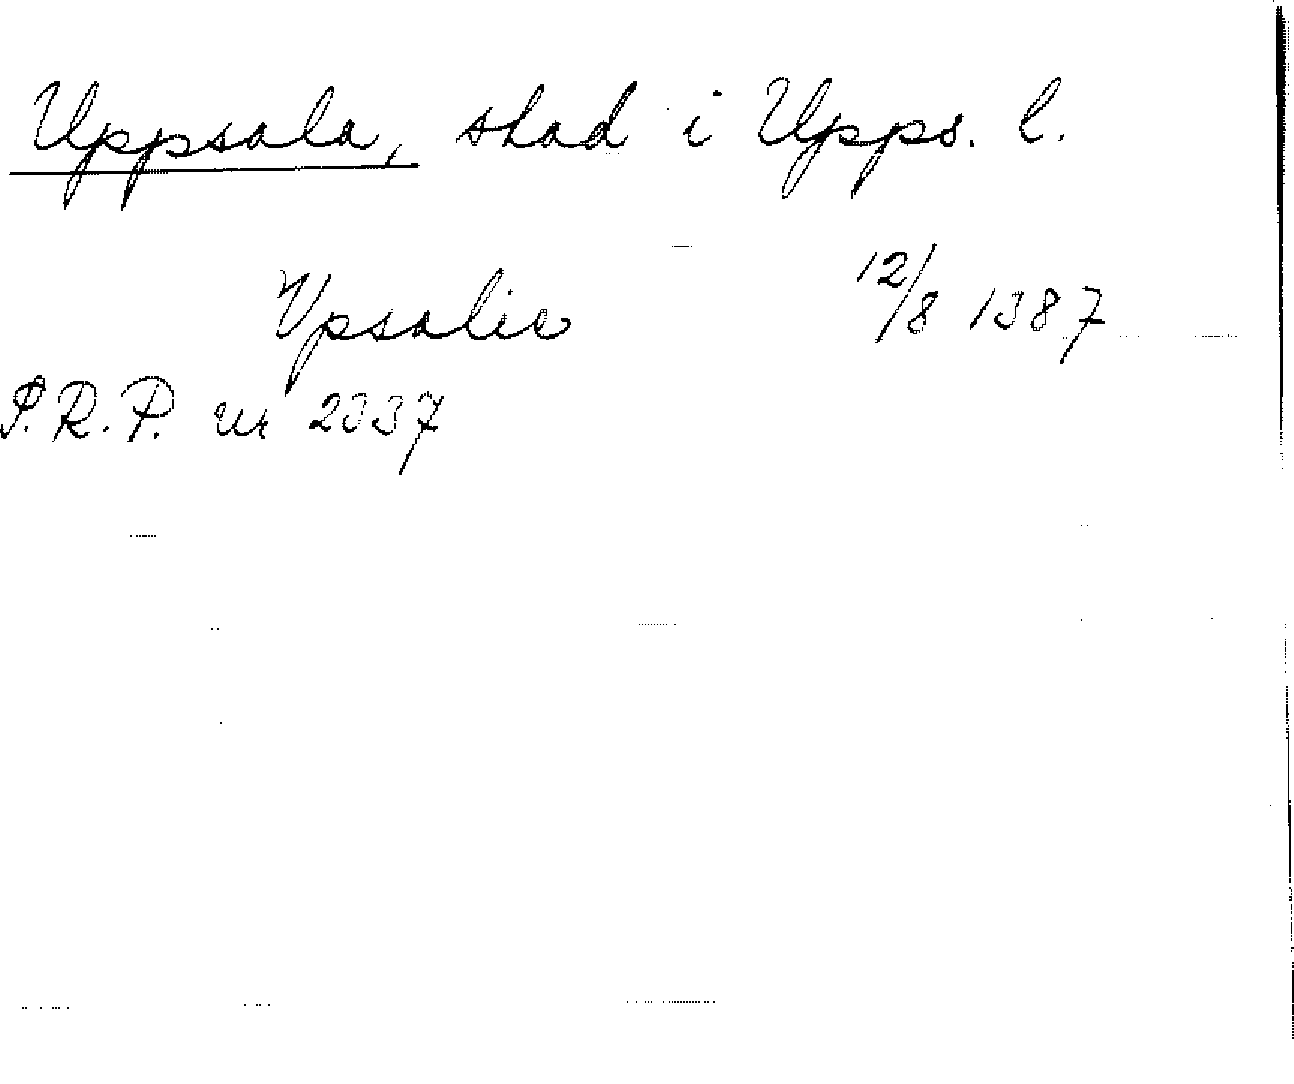 Uppsala, stad i Upps. l.
Vpsalie 12/8 1387
S.R.P. nr 2337